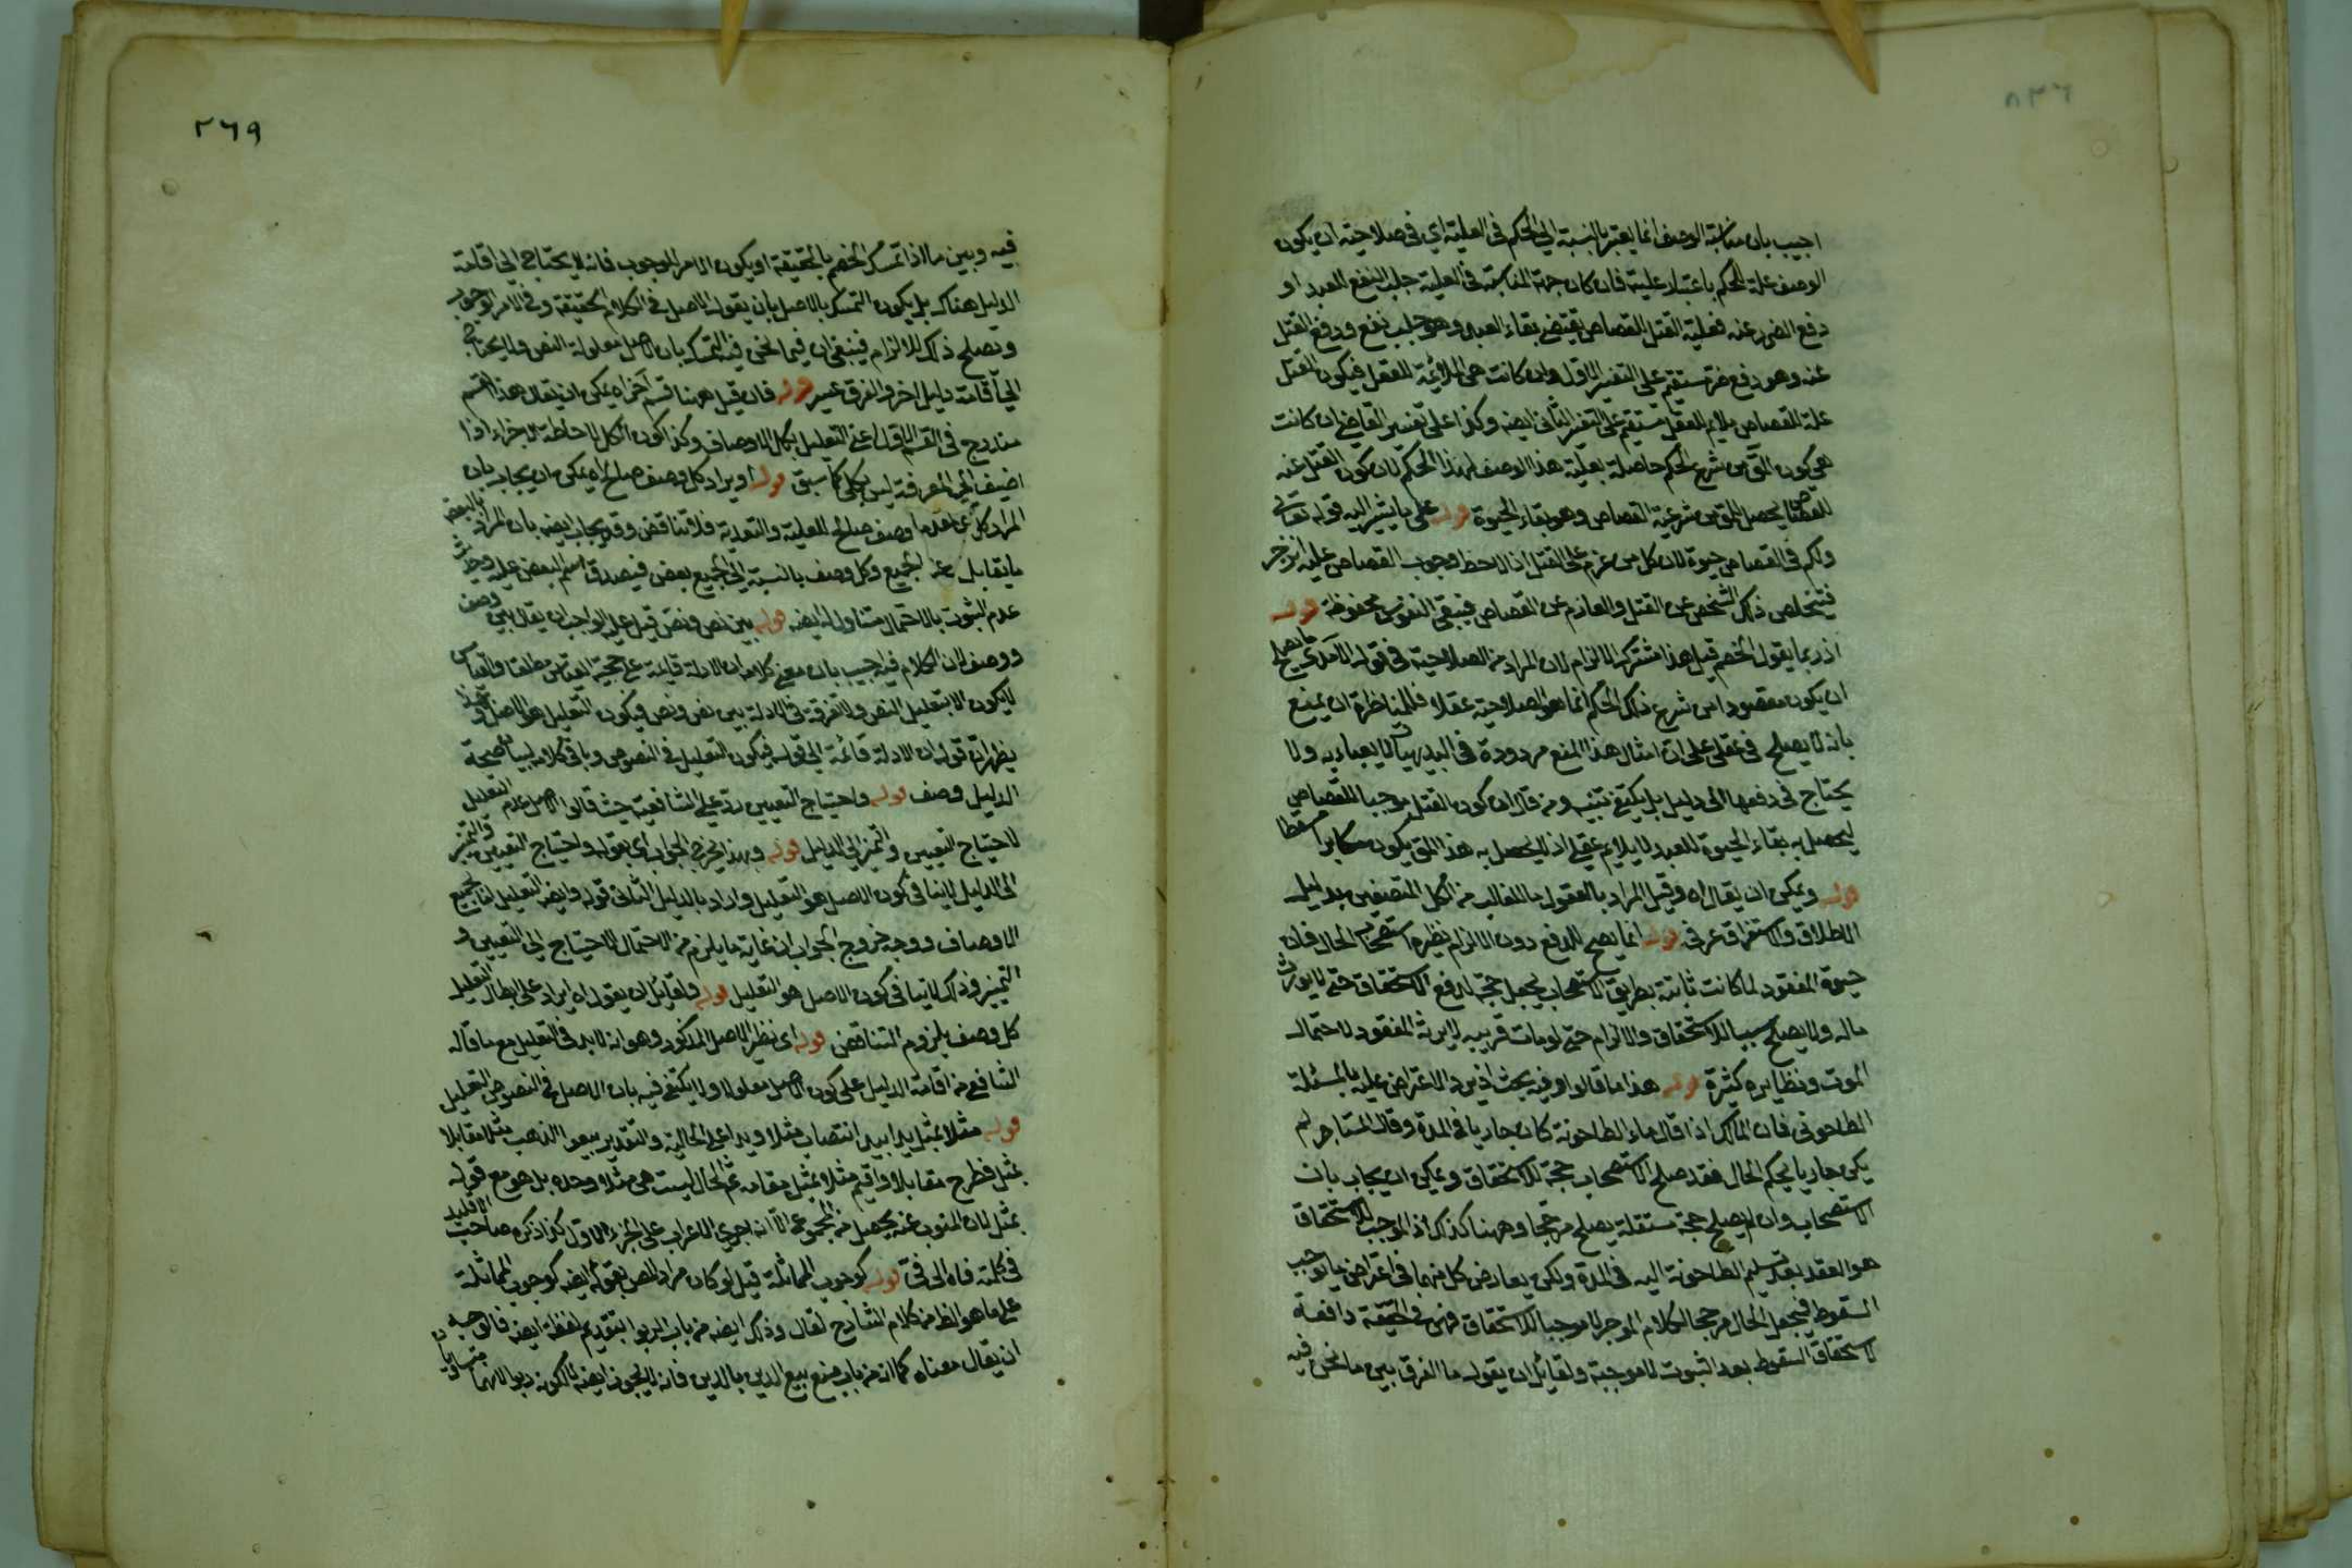 اجيب بان مناسبة الوصف انما يعتبر بالنسبة الى الحكم فى العلية اى فى صلاحيته ان يكون
الوصف علة للحكم باعتبار علية فان كان جهة المناسبة فى العلية جلب النفع للعبد او
دفع الضرر عنه فعلية القتل للقصاص يقتضى بقاء العبد وهو جلب نفع ودفع القتل
عنه وهو دفع ضر مستقيم على التفسير الاول وان كانت هى الملائمة للعقل فيكون القتل
علة للقصاص ملايم للعقل مستقيم على التفسير الثانى ايضه وكذا على تفسير القاضى ان كانت
هى كون من شرع الحكم حاصلة بعلية هذا الوصف لهذا الحكم لان كون القتل عنه
للقصاص يحصل من شرعية القصاص وهو بقاء الحيوة قوله على ما يشير اليه قوله تعالى
ولكم فى القصاص حيوة لان كل من عزم على القتل اذا لاحظ وجوب القصاص عليه انزجر
فيتخلص ذلك الشخص عن القتل والعازم عن القصاص فيبقى النفوس محفوظة قوله
اذ ربما يقول الخصم قيل هذا مشترك الالزام لان المراد من الصلاحية فى قوله الآمدى ما يصلح
ان يكون مقصودا من شرع ذلك الحكم انما هو الصلاحية عقلا فللمناظرة ان يمنع
بانه لا يصلح فى عقلى على ان امثال هذا المنع مردودة فى البديهيات لا يعباء به ولا
يحتاج فى دفعها الى دليل بل يكتفى بتنبيه ومن قال ان كون القتل موجبا للقصاص
ليحصل به بقاء الحيوة للعبد لا يلايم عقلى اذ لا يحصل به هذا يكون مكابرا
قوله ويمكن ان يقال اه وقيل المراد بالعقول ما للغالب من الكل المتصفين بدليل
الاطلاق والاستغراق عرفى قوله انما يصح للدفع دون الالزام نظيره استصحاب الحال فان
حيوة المفقود لما كانت ثابتة بطريق الاستصحاب يجعل حجة لدفع الاستحقاق حتى لا يورث
ماله ولا يصلح سببا للاستحقاق والالزام حتى لو مات قريبه لا يرثه المفقود لاحتمال
الموت ونظايره كثيرة قوله هذا ما قالوا وفيه بحث اذ يرد الاعتراض عليه بالمسئلة
الطاحونى فان المالك اذا قال ماء الطاحونة كان جاريا فى المدة وقال المستاجر لم
يكن جاريا يحكم الحال فقد صلح الاستصحاب حجة للاستحقاق ويمكن ان يجاب بان
الاستصحاب وان لم يصلح حجة مستقلة يصلح مرجحا وههنا كذلك اذ الموجب للاستحقاق
هو العقد بعد تسليم الطاحونة اليه فى المدة ولكن يعارض كل منهما فى اعتراض ما يوجب
السقوط فيجعل الحال مرجحا لكلام الموجر لا موجبا للاستحقاق فهى فى الحقيقة دافعة
لاستحقاق السقوط بعد الثبوت لا موجبة ولقائل ان يقول ما الفرق بين ما نحن فيه
٢٦٩
فيه وبين ما اذا تمسك الخصم بالحقيقة او يكون الامر للوجوب فانه لا يحتاج الى اقامة
الدليل هناك بل يكون التمسك بالاصل بان يقول الاصل فى الكلام الحقيقة وفى الامر الوجوب
وتصلح ذلك للالزام فينبغى ان فيما نحن فيه التمسك بان الاصل معلولة النص ولا يحتاج
الى اقامة دليل اخر والفرق عسير قوله فان قيل ههنا قسم آخر اه يمكن ان يقال هذا القسم
مندرج فى القسم الاول اعنى التعليل بكل الاوصاف وكذا كون الكل لاحاطة الاجزاء اذا
اضيف الى المعرفة ليس بكلى كما سبق قوله او يراد كل وصف صلح اه يمكن ان يجاب بان
المراد كل وصف صلح للعلية والتعدية فلا تناقض وقد يجاب ايضه بان المراد بالبعض
ما يقابل الجميع وكل وصف بالنسبة الى الجميع بعض فيصدق اسم البعض عليه وحديث
عدم الثبوت بالاحتمال متناول له ايضه قوله بين نص ونص قيل عليه الواجب ان يقال بين وصف
ووصف لان الكلام فيه اجيب بان معنى كلامه ان الادلة قائمة على حجية القياس مطلقا والقياس
لا يكون الا بتعليل النص ولا تفرقة فى الادلة بين نص ونص فيكون التعليل هو الاصل
يظهر ان قوله ان الادلة قائمة الى قوله فيكون التعليل فى النصوص وباقى كلامه لبيان صحة
الدليل وصف قوله واحتياج التعيين رد على الشافعية حيث قالوا الاصل عدم التعليل
لاحتياج التعيين والتميز الى الدليل قوله وبهذا يخرج الجواب اى بقوله واحتياج التعيين والتميز
الى الدليل لا ينافى كون الاصل هو التعليل واراد بالدليل الثانى قوله وايضه التعليل اما بجميع
الاوصاف ووجه خروج الجواب ان غاية ما يلزم من الاحتمال الاحتياج الى التعيين و
التميز وذلك لا ينافى كون الاصل هو التعليل قوله ولقائل ان يقول اه ايراد على ابطال التعليل
كل وصف بلزوم التناقض قوله اى نظير الاصل المذكور وهو انه لابد فى التعليل مع ما قاله
الشافعى من اقامة الدليل على كون الاصل معلولا ولا يكتفى فيه بان الاصل فى النصوص التعليل
قوله مثلا بمثل يدا بيد انتصاب مثلا ويدا على الحالية والتقدير بيعوا الذهب مثلا مقابلا
بمثل فطرح مقابلا واقيم مثلا بمثل مقامه ثم الحال ليست هى مثلا وحده بل هو مع قوله
بمثل لان المنوب عنه يحصل من المجموع الا انه اجرى الاعراب على الجزء الاول كذا ذكره صاحب الاقليد
فى كلمته فاه الى فى قوله كوجوب المماثلة قيل لو كان مراد المص بقوله ايضه كوجوب المماثلة
على ما هو الظ من كلام الشارح لقال وذلك ايضه من باب الربوا بتقديم لفظة ايضه فالوجه
ان يقال معناه كما انه من باب منع بيع الدين بالدين فانه لا يجوز ايضه لكونه ربوا